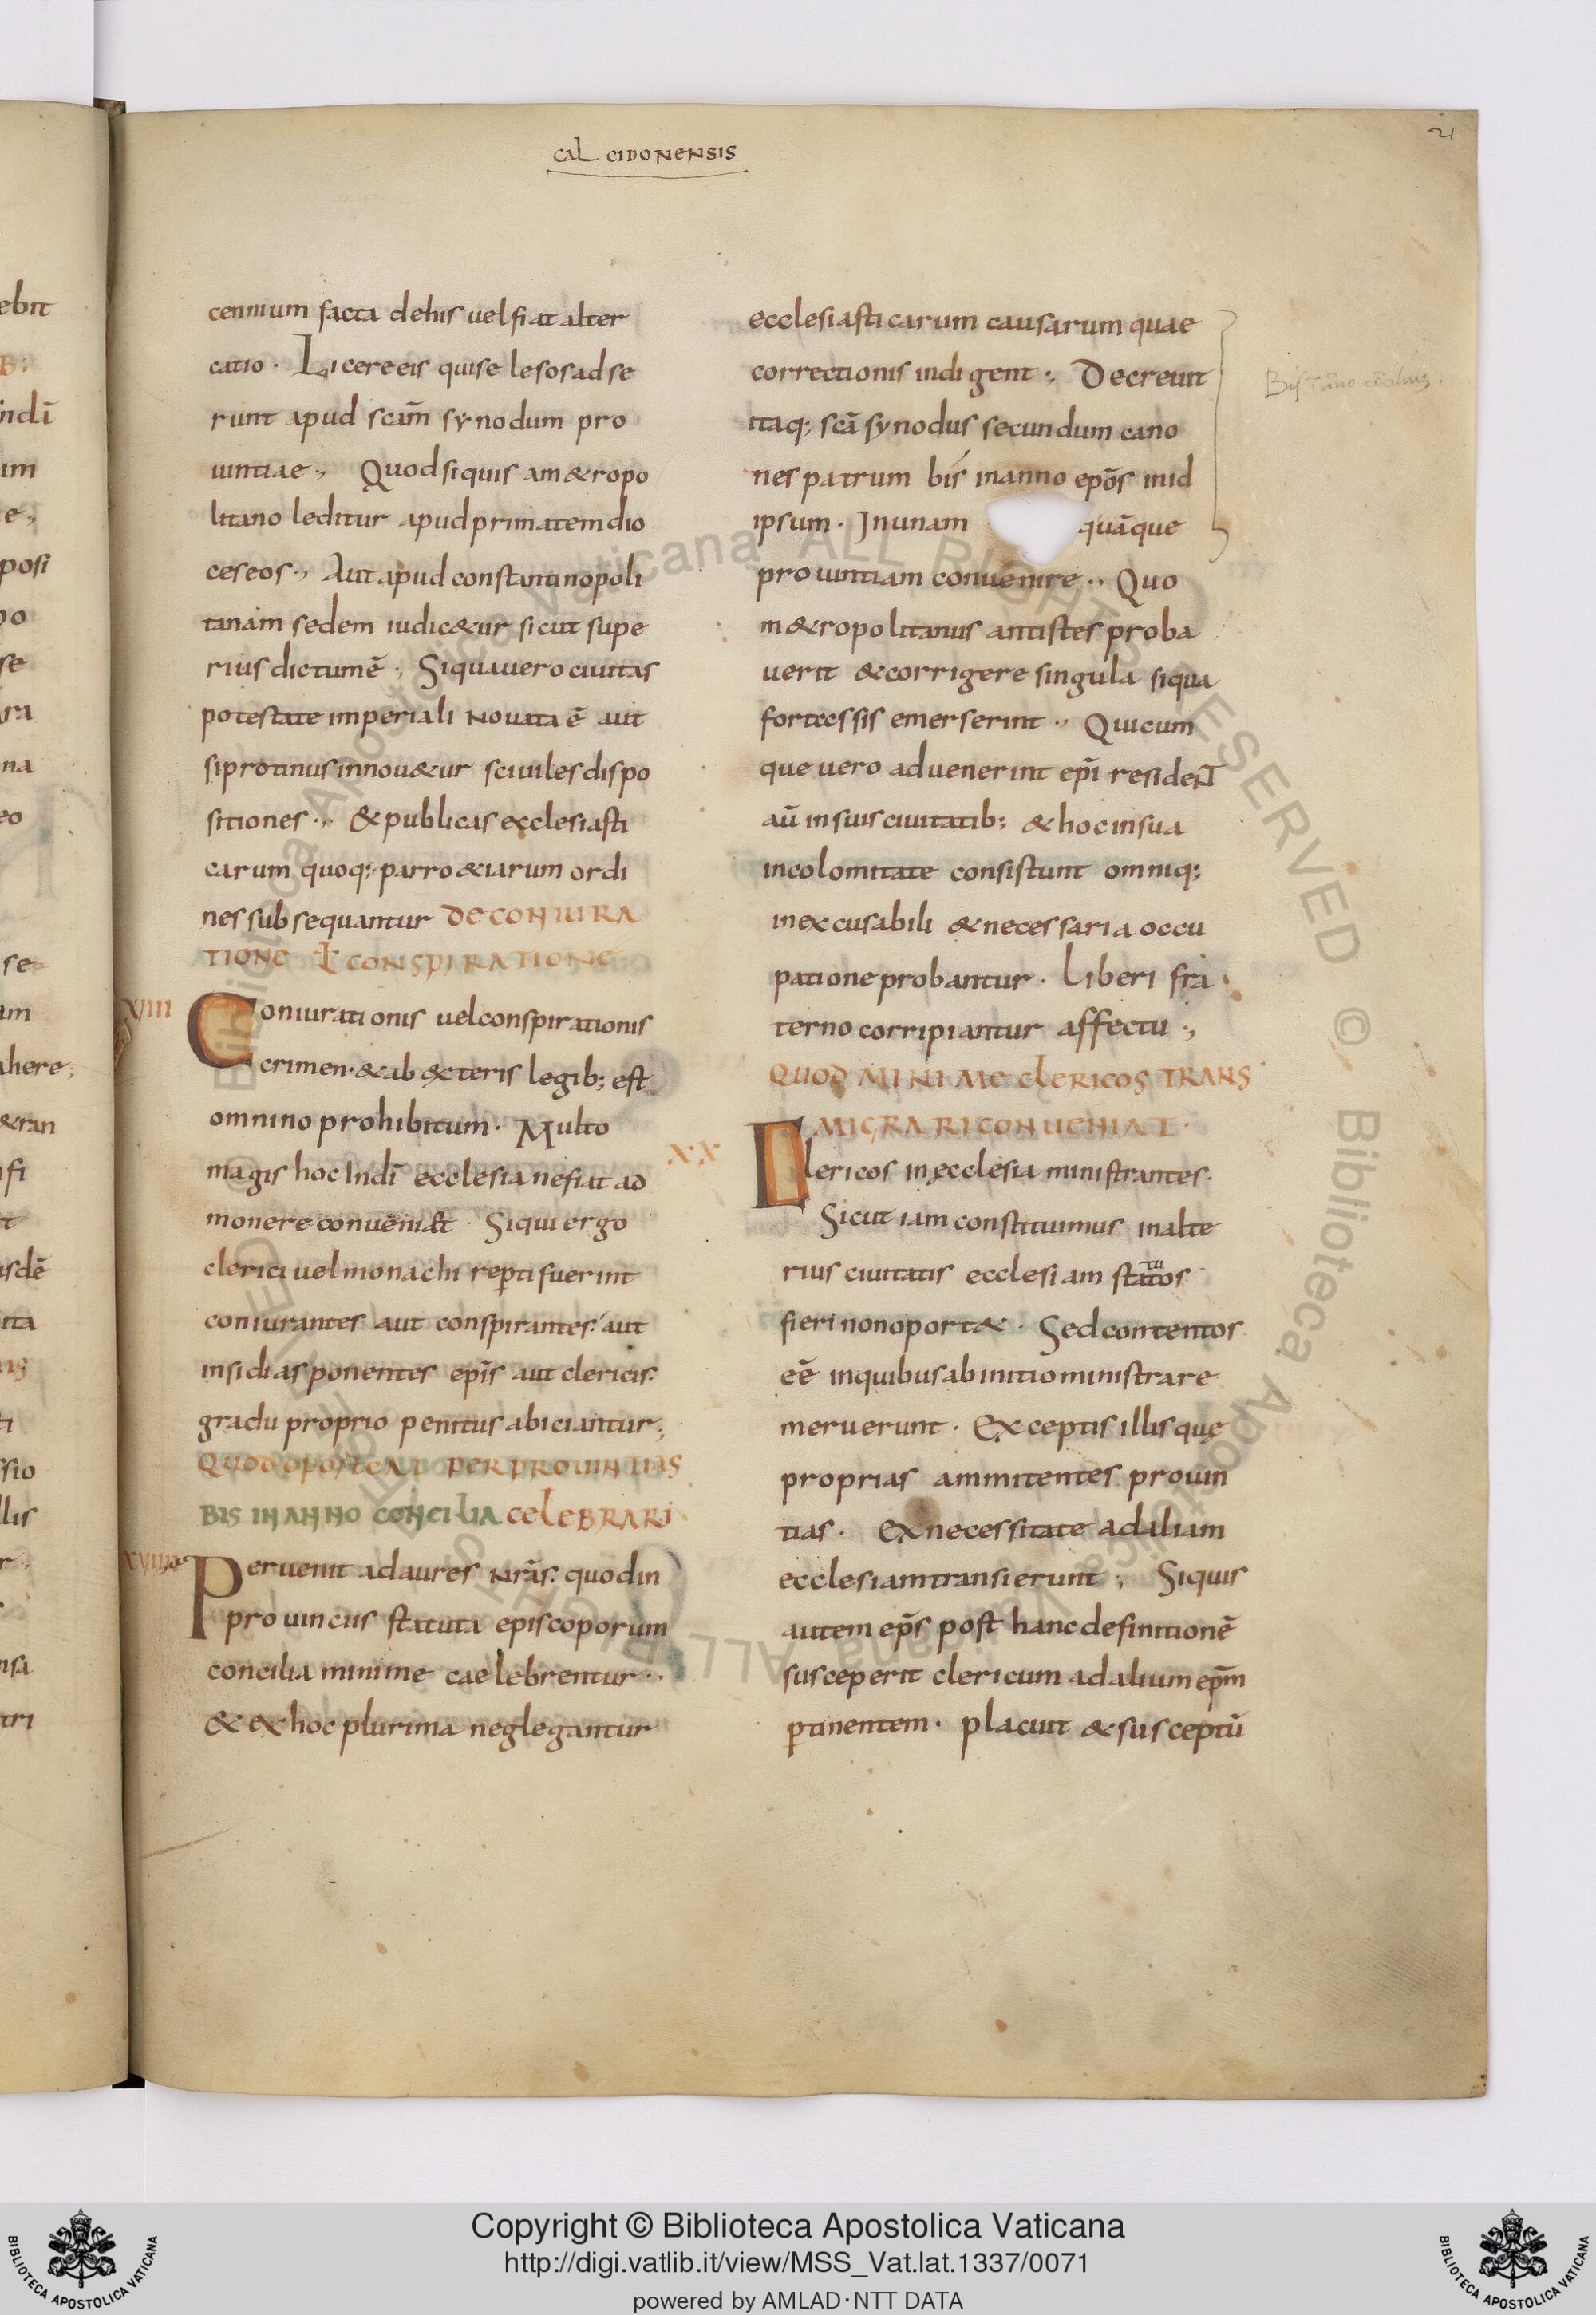 21
CAL CIDONENSIS
cennium facta dehis uel fiat alter
catio · Licere eis qui se lesos adse
runt apud scām synodum pro
uintiae ., Quod siquis am&ropo
litano leditur apud primatem dio
ceseos ., Aut apud constantinopoli
tanam sedem iudic&ur sicut supe
rius dictum ē ., Siqua uero ciuitas
potestate imperiali nouata ē aut
si protinus innou&ur sciuiles dispo
sitiones ., & publicas ecclesiasti
carum quoq; parro&iarum ordi
nes subsequantur DE CONIURA
TIONE ł CONSPIRATIONE
XVIII
Coniurationis uel conspirationis
crimen · & ab ęxteris legib; est
omnino prohibitum · Multo
magis hoc in dī ecclesia ne fiat ad
monere conueniat · Siqui ergo
clerici uel monachi reperti fuerint
coniurantes aut conspirantes · aut
insidias ponentes epīs aut clericis ·
gradu proprio penitus abiciantur ;
QUOD OPORTEAT PER PROUINTIAS
BIS IN ANNO CONCILIA CELEBRARI
XVIIII
Peruenit ad aures nrās · quod in
prouinciis statuta episcoporum
concilia minime caelebrentur ·,
& ex hoc plurima neglegantur
ecclesiasticarum causarum quae
correctionis indigent ., Decreuit
itaq; scā synodus secundum cano
nes patrum bis in anno epōs in id
ipsum · In unam quāque
prouintiam conuenire ., Quo
m&ropolitanus antistes proba
uerit & corrigere singula siqua
fortessis emerserint ., Quicum
que uero aduenerint epī resideNT
aū in suis ciuitatib; & hoc in sua
incolomitate consistunt omniq;
inexcusabili & necessaria occu
patione probantur · Liberi fra
terno corripiantur affectu .,
Bis ī āno cōcilius
QUOD MINIME CLERICOS TRANS
MIGRARI CONUENIAT ·
XX
Clericos in ęcclesia ministrantes ·
Sicut iam constituimus in alte
rius ciuitatis ecclesiam statutos
fieri non oport& · Sed contentos
eē in quibus ab initio ministrare
meruerunt · Exceptis illis quę
proprias ammitentes prouin
tias · Ex necessitate ad aliam
ecclesiam transierunt ; Siquis
autem ep̄s post hanc definitionē
susceperit clericum ad alium ep̄m
pertinentem · placuit & susceptū
Copyright © Biblioteca Apostolica Vaticana
http://digi.vatlib.it/view/MSS_Vat.lat.1337/0071
powered by AMLAD·NTT DATA
BIBLIOTECA APOSTOLICA VATICANA
BIBLIOTECA APOSTOLICA VATICANA